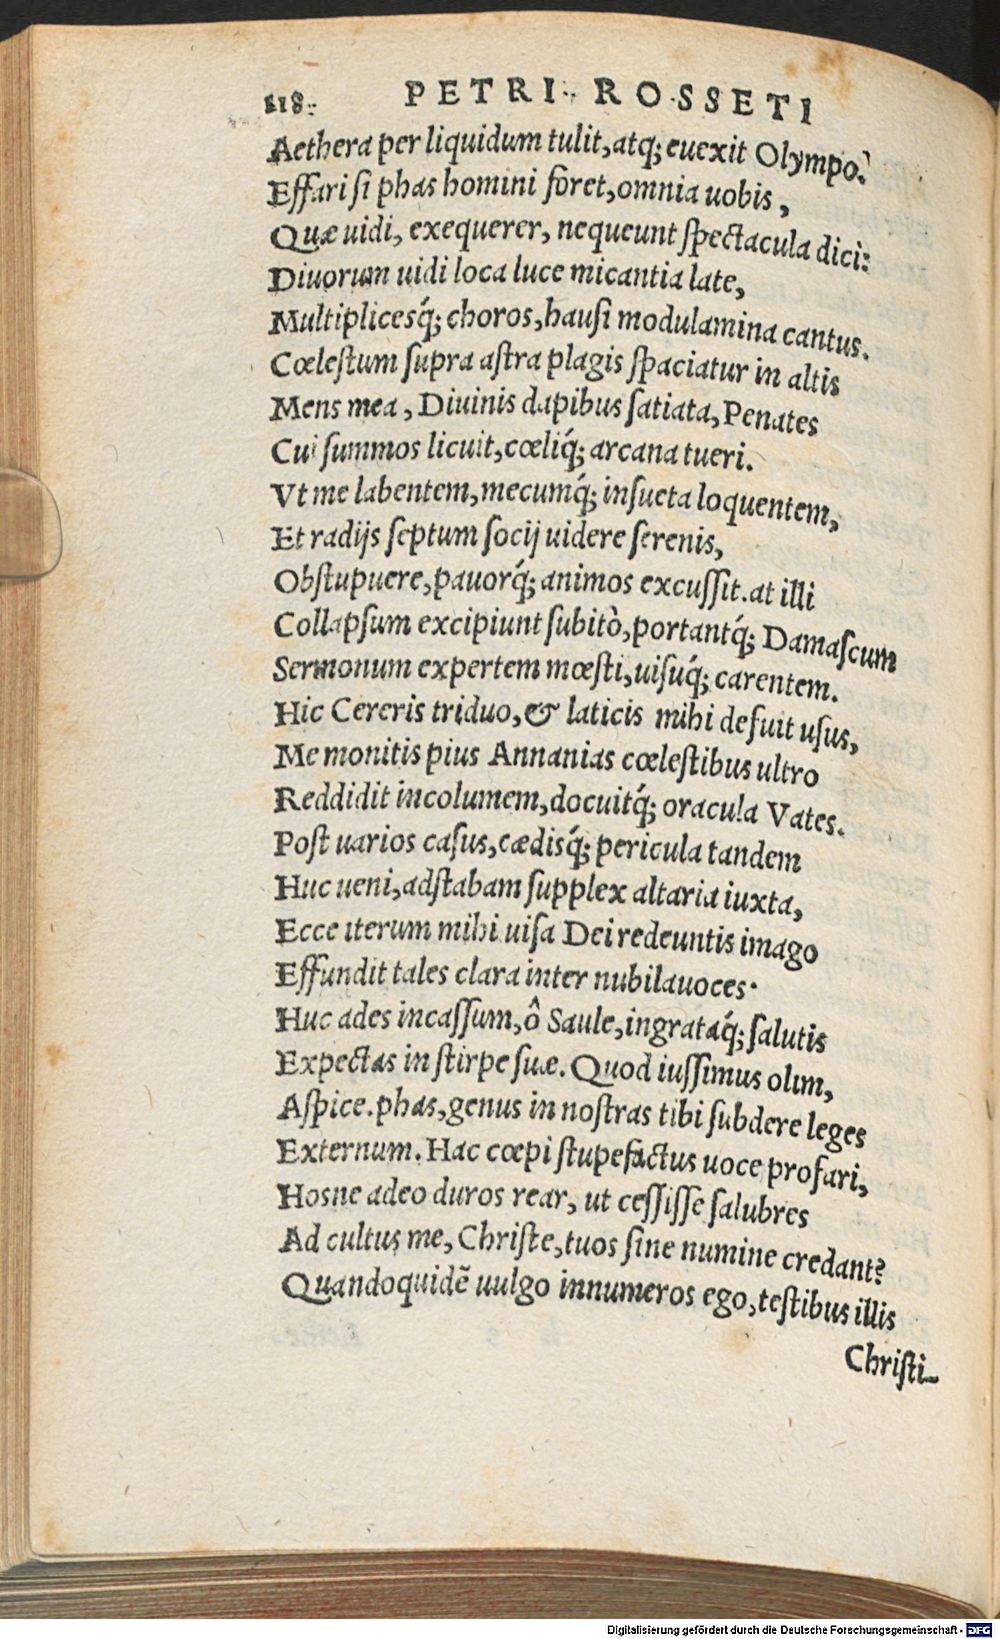 118. PETRI ROSSETI
Aethera per liquidum tulit, atq; euexit Olympo?
Effari si phas homini foret, omnia uobis,
Quæ uidi, exequerer, nequeunt spectacula dici:
Diuorum uidi loca luce micantia late,
Multiplicesq́; choros, hausi modulamina cantus.
Cœlestum supra astra plagis spaciatur in altis
Mens mea, Diuinis dapibus satiata, Penates
Cui summos licuit, cœliq́; arcana tueri.
Vt me labentem, mecumq́; insueta loquentem,
Et radijs septum socij uidere serenis,
Obstupuere, pauorq́; animos excussit. at illi
Collapsum excipiunt subitò, portantq́; Damascum
Sermonum expertem mœsti, uisuq́; carentem.
Hic Cereris triduo, & laticis mihi defuit usus,
Me monitis pius Annanias cœlestibus ultro
Reddidit incolumem, docuitq́; oracula Vates.
Post uarios casus, cædisq́; pericula tandem
Huc ueni, adstabam supplex altaria iuxta,
Ecce iterum mihi uisa Dei redeuntis imago
Effundit tales clara inter nubila uoces.
Huc ades incassum, ô Saule, ingrataq́; salutis
Expectas in stirpe suæ. Quod iussimus olim,
Aspice. phas, genus in nostras tibi subdere leges
Externum. Hac cœpi stupefactus uoce profari,
Hosne adeo duros rear, ut cessisse salubres
Ad cultus me, Christe, tuos sine numine credant?
Quandoquidẽ uulgo innumeros ego, testibus illis
Christi-
Digitalisierung gefördert durch die Deutsche Forschungsgemeinschaft - DFG